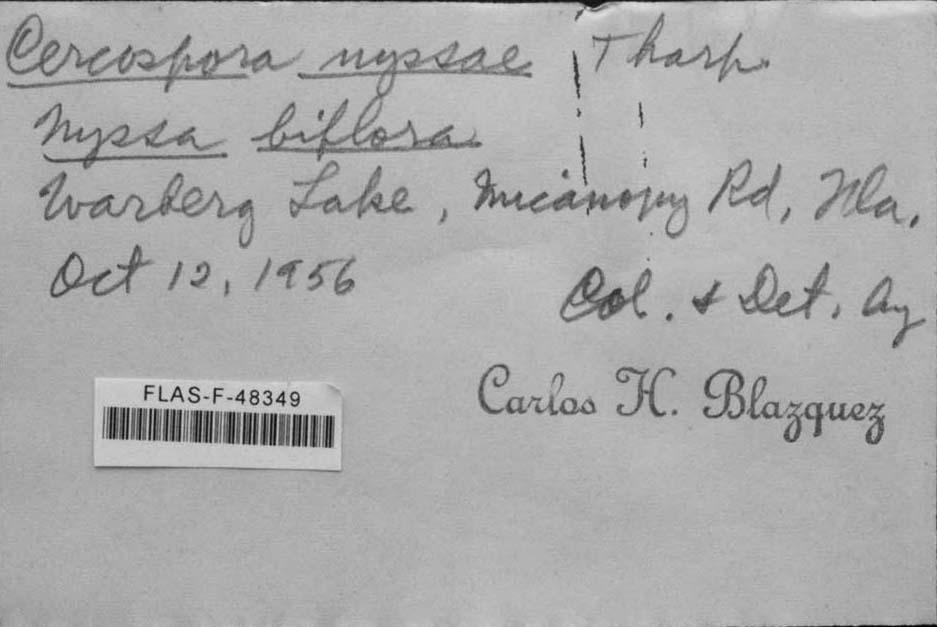 Cercospora nyssae Tharp.
Nyssa biflora
Warberg Lake, Micanopy Rd, Fla.
Oct 12, 1956
Col. & Det. by
Carlos H. Blazquez
FLAS-F-48349